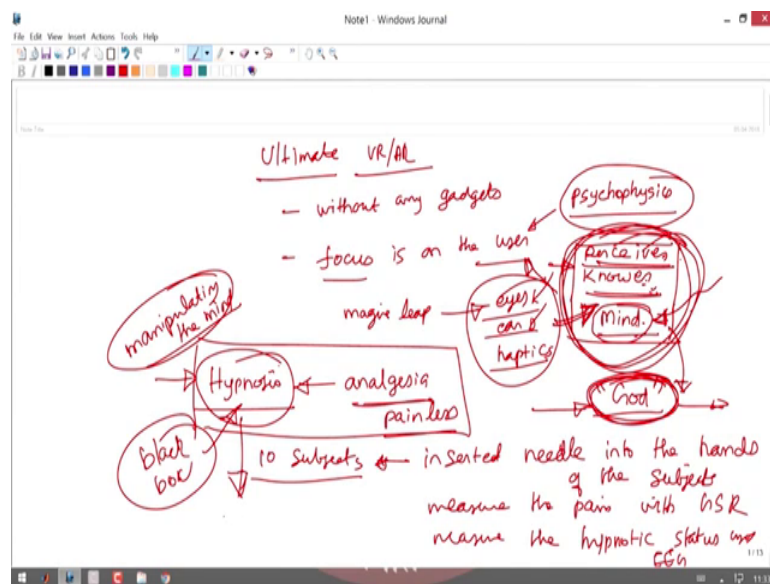 Note1 - Windows Journal
File Edit View Insert Actions Tools Help
Note Title
Ultimate VR/AR
- without any gadgets
- focus is on the user
psychophysics
perceives
Knows
Mind.
magic leap
eyes
ear
haptics
manipulating
the mind
Hypnosis
analgesia
painless
"God"
black
box
10 subjects
inserted needle into the hands
of the subjects
measure the pain with GSR
measure the hypnotic status
EEG
1/13